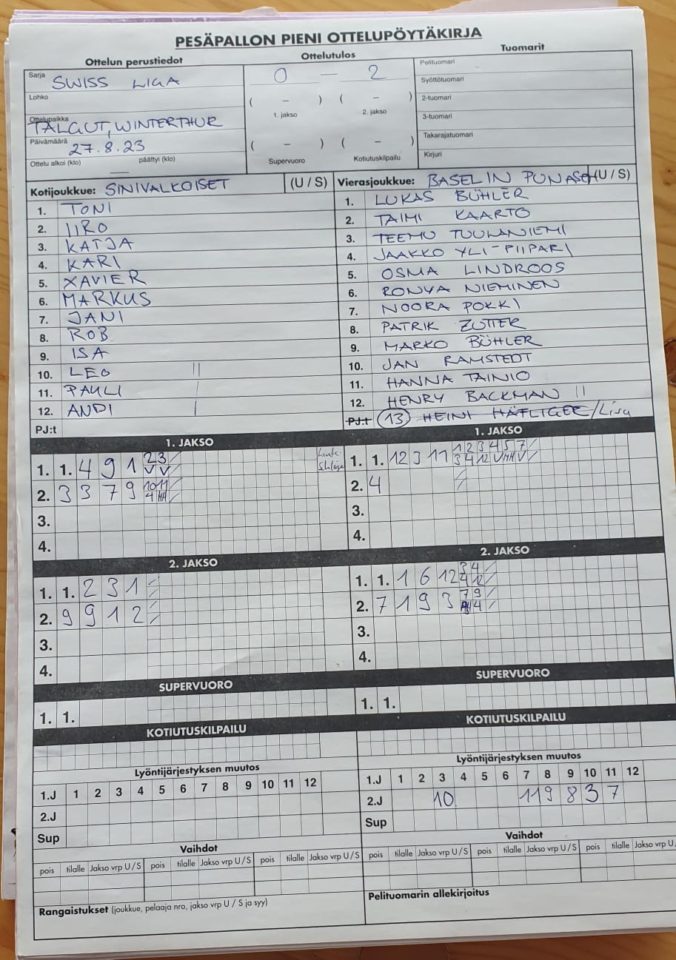 PESÄPALLON PIENI OTTELUPÖYTÄKIRJA
Ottelun perustiedot
Ottelutulos
Tuomarit
Sarja SWISS LIGA
0 — 2
Pelituomari
Lohko
Syöttötuomari
( – ) ( – )
2-tuomari
Ottelupaikka TALGUT, WINTERTHUR
1. jakso 2. jakso
3-tuomari
Päivämäärä 27.8.23
( – ) ( – )
Takarajatuomari
Ottelu alkoi (klo) päättyi (klo)
Supervuoro Kotiutuskilpailu
Kirjuri
Kotijoukkue: SINIVALKOISET (U / S)
1. TONI
2. IIRO
3. KATJA
4. KARI
5. XAVIER
6. MARKUS
7. JANI
8. ROB
9. ISA
10. LEO II
11. PAULI I
12. ANDI I
PJ:t
Vierasjoukkue: BASELIN PUNASET (U / S)
1. LUKAS BÜHLER
2. TAIMI KAARTO
3. TEEMU TUULANIEMI
4. JAAKKO YLI-PIIPARI
5. OSMA LINDROOS
6. RONYA NIEMINEN
7. NOORA POKKI
8. PATRIK ZUTTER
9. MARKO BÜHLER
10. JAN RAMSTEDT
11. HANNA TAINIO
12. HENRY BACKMAN II
PJ:t 13 HEINI HÄFLIGER/Lisa
1. JAKSO
1. 1. 4 9 1 2 3
V V
2. 3 3 7 9 10 11
3.
4.
1. JAKSO
1. 1. 12 3 11 1 2 3 4 5 7
2. 4
3.
4.
2. JAKSO
1. 1. 2 3 1
2. 9 9 1 2
3.
4.
2. JAKSO
1. 1. 1 6 12 3 4
4 12
2. 7 1 9 3 7 9
3.
4.
SUPERVUORO
1. 1.
SUPERVUORO
1. 1.
KOTIUTUSKILPAILU
KOTIUTUSKILPAILU
Lyöntijärjestyksen muutos
1.J 1 2 3 4 5 6 7 8 9 10 11 12
2.J
Sup
Lyöntijärjestyksen muutos
1.J 1 2 3 4 5 6 7 8 9 10 11 12
2.J 10 11 9 8 3 7
Sup
Vaihdot
pois tilalle Jakso vrp U / S pois tilalle Jakso vrp U / S pois tilalle Jakso vrp U / S
Vaihdot
pois tilalle Jakso vrp U / S pois tilalle Jakso vrp U / S pois tilalle Jakso vrp U / S
Rangaistukset (joukkue, pelaaja nro, jakso vrp U / S ja syy)
Pelituomarin allekirjoitus